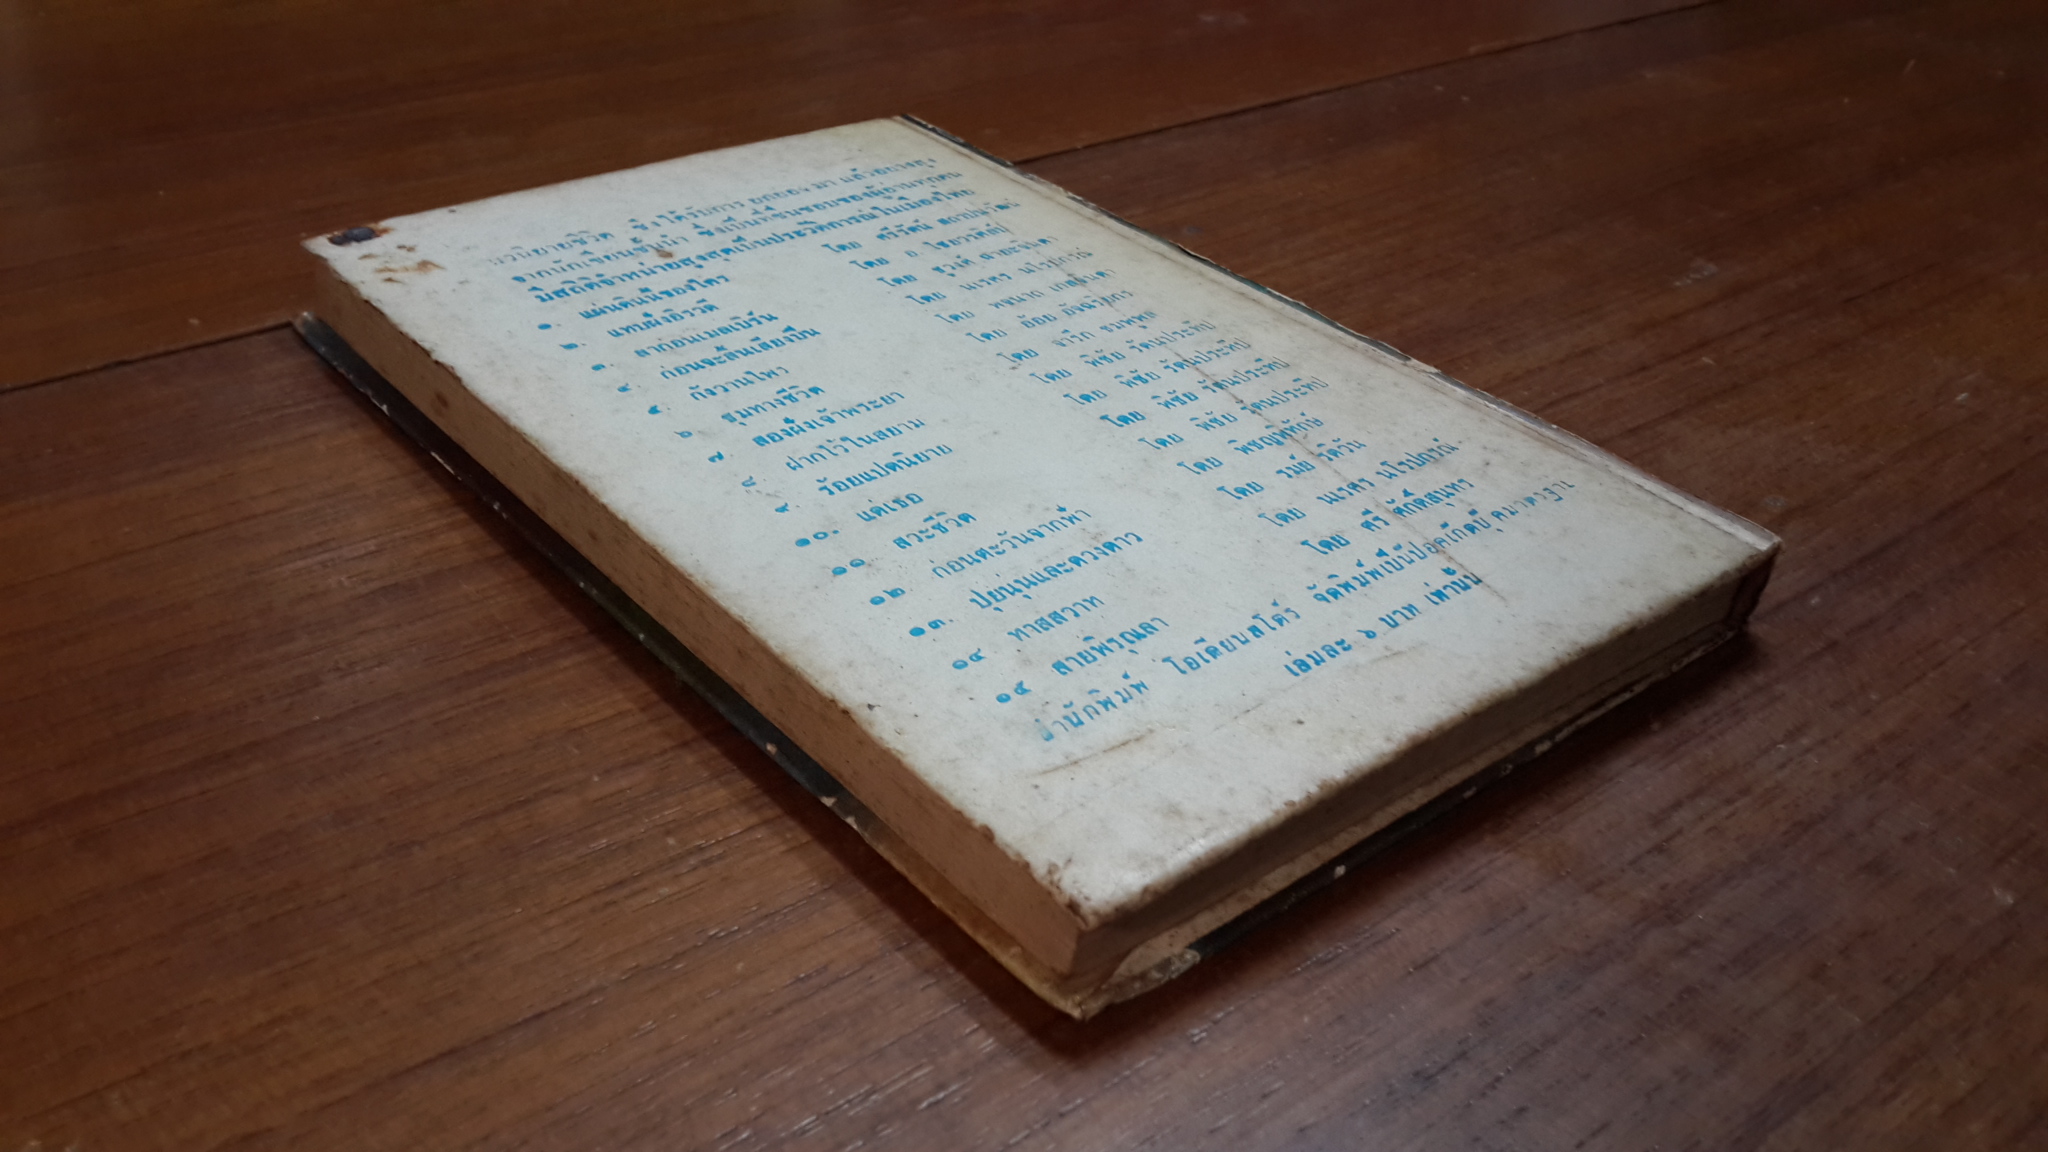 นวนิยายชีวิต ซึ่งได้รับการ ยกย่อง มา แล้วอย่างสูง
จากนักเขียนชั้นนำ ซึ่งเป็นที่ชื่นชอบของผู้อ่านทุกคน
มีสถิติจำหน่ายสูงสุดเป็นประวัติการณ์ ในเมืองไทย
๑. แผ่นดินนี้ของใคร โดย ศรีรัตน์ สถาปนวัฒน์
๒. แทบฝั่งอิรวดี โดย อ. ไชยวรศิลป์
๓. ลาก่อนเมลเบิร์น โดย ชูวงศ์ ฉายะจินดา
๔. ก่อนจะสิ้นเสียงปืน โดย นเรศร นโรปกรณ์
๕. กังวานไพร โดย พจนาถ เกสจินดา
๖ ชุมทางชีวิต โดย อ้อย อัจฉริยกร
๗ สองฝั่งเจ้าพระยา โดย จารึก ชมพูพล
๘ ฝากไว้ในสยาม โดย พิชัย รัตนประทีป
๙. ร้อยแปดนิยาย โดย พิชัย รัตนประทีป
๑๐. แด่เธอ โดย พิชัย รัตนประทีป
๑๑ สวะชีวิต โดย พิชัย รัตนประทีป
๑๒ ก่อนตะวันจากฟ้า โดย พิชญพิทักษ์
๑๓. ปุยนุ่นและดวงดาว โดย รมย์ รติวัน
๑๔ ทาสสวาท โดย นเรศร นโรปกรณ์
๑๕ สายพิรุณลา โดย ศรี ศักดิ์สุนทร
สำนักพิมพ์ โอเดียนสโตร์ จัดพิมพ์เป็นปอคเก็ตบุ๊คมาตรฐาน
เล่มละ ๖ บาท เท่านั้น